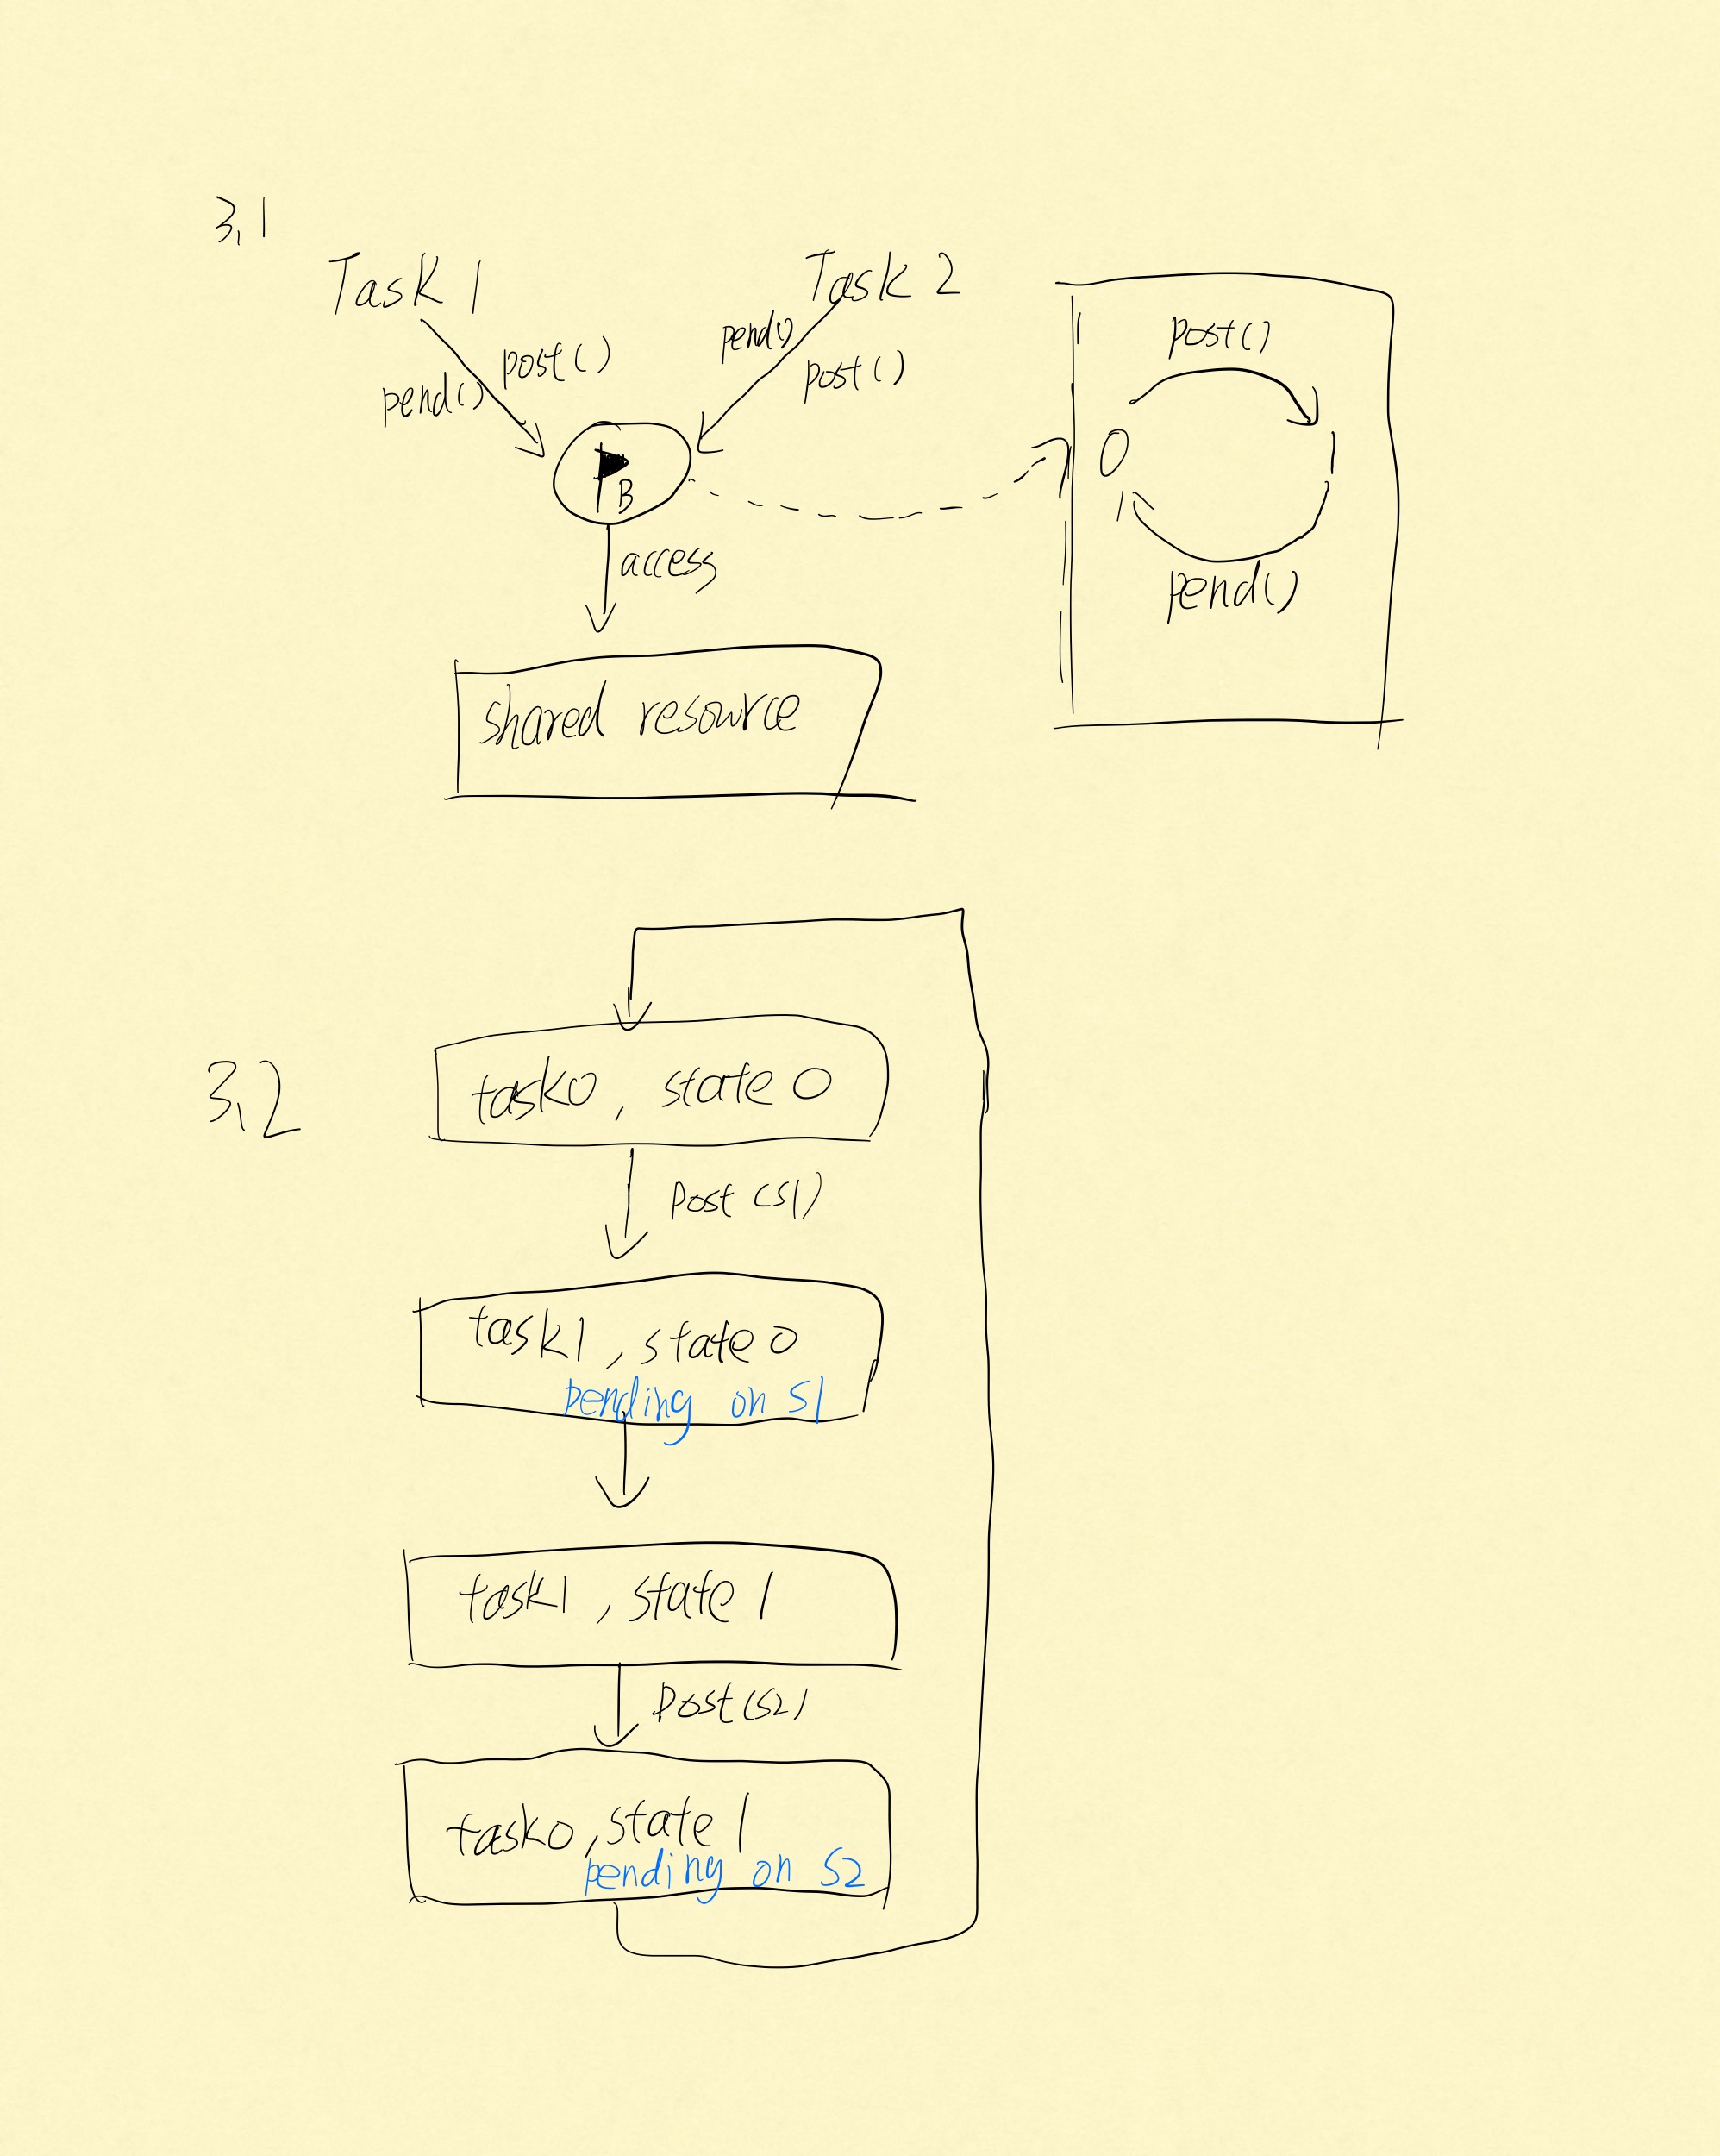 3.1
Task 1
Task 2
post()
pend()
post()
pend()
post()
0
1
B
pend()
access
shared resource
3.2
task0, state 0
Post (S1)
task1, state 0
pending on S1
task1, state 1
Post(S2)
task0, state 1
pending on S2